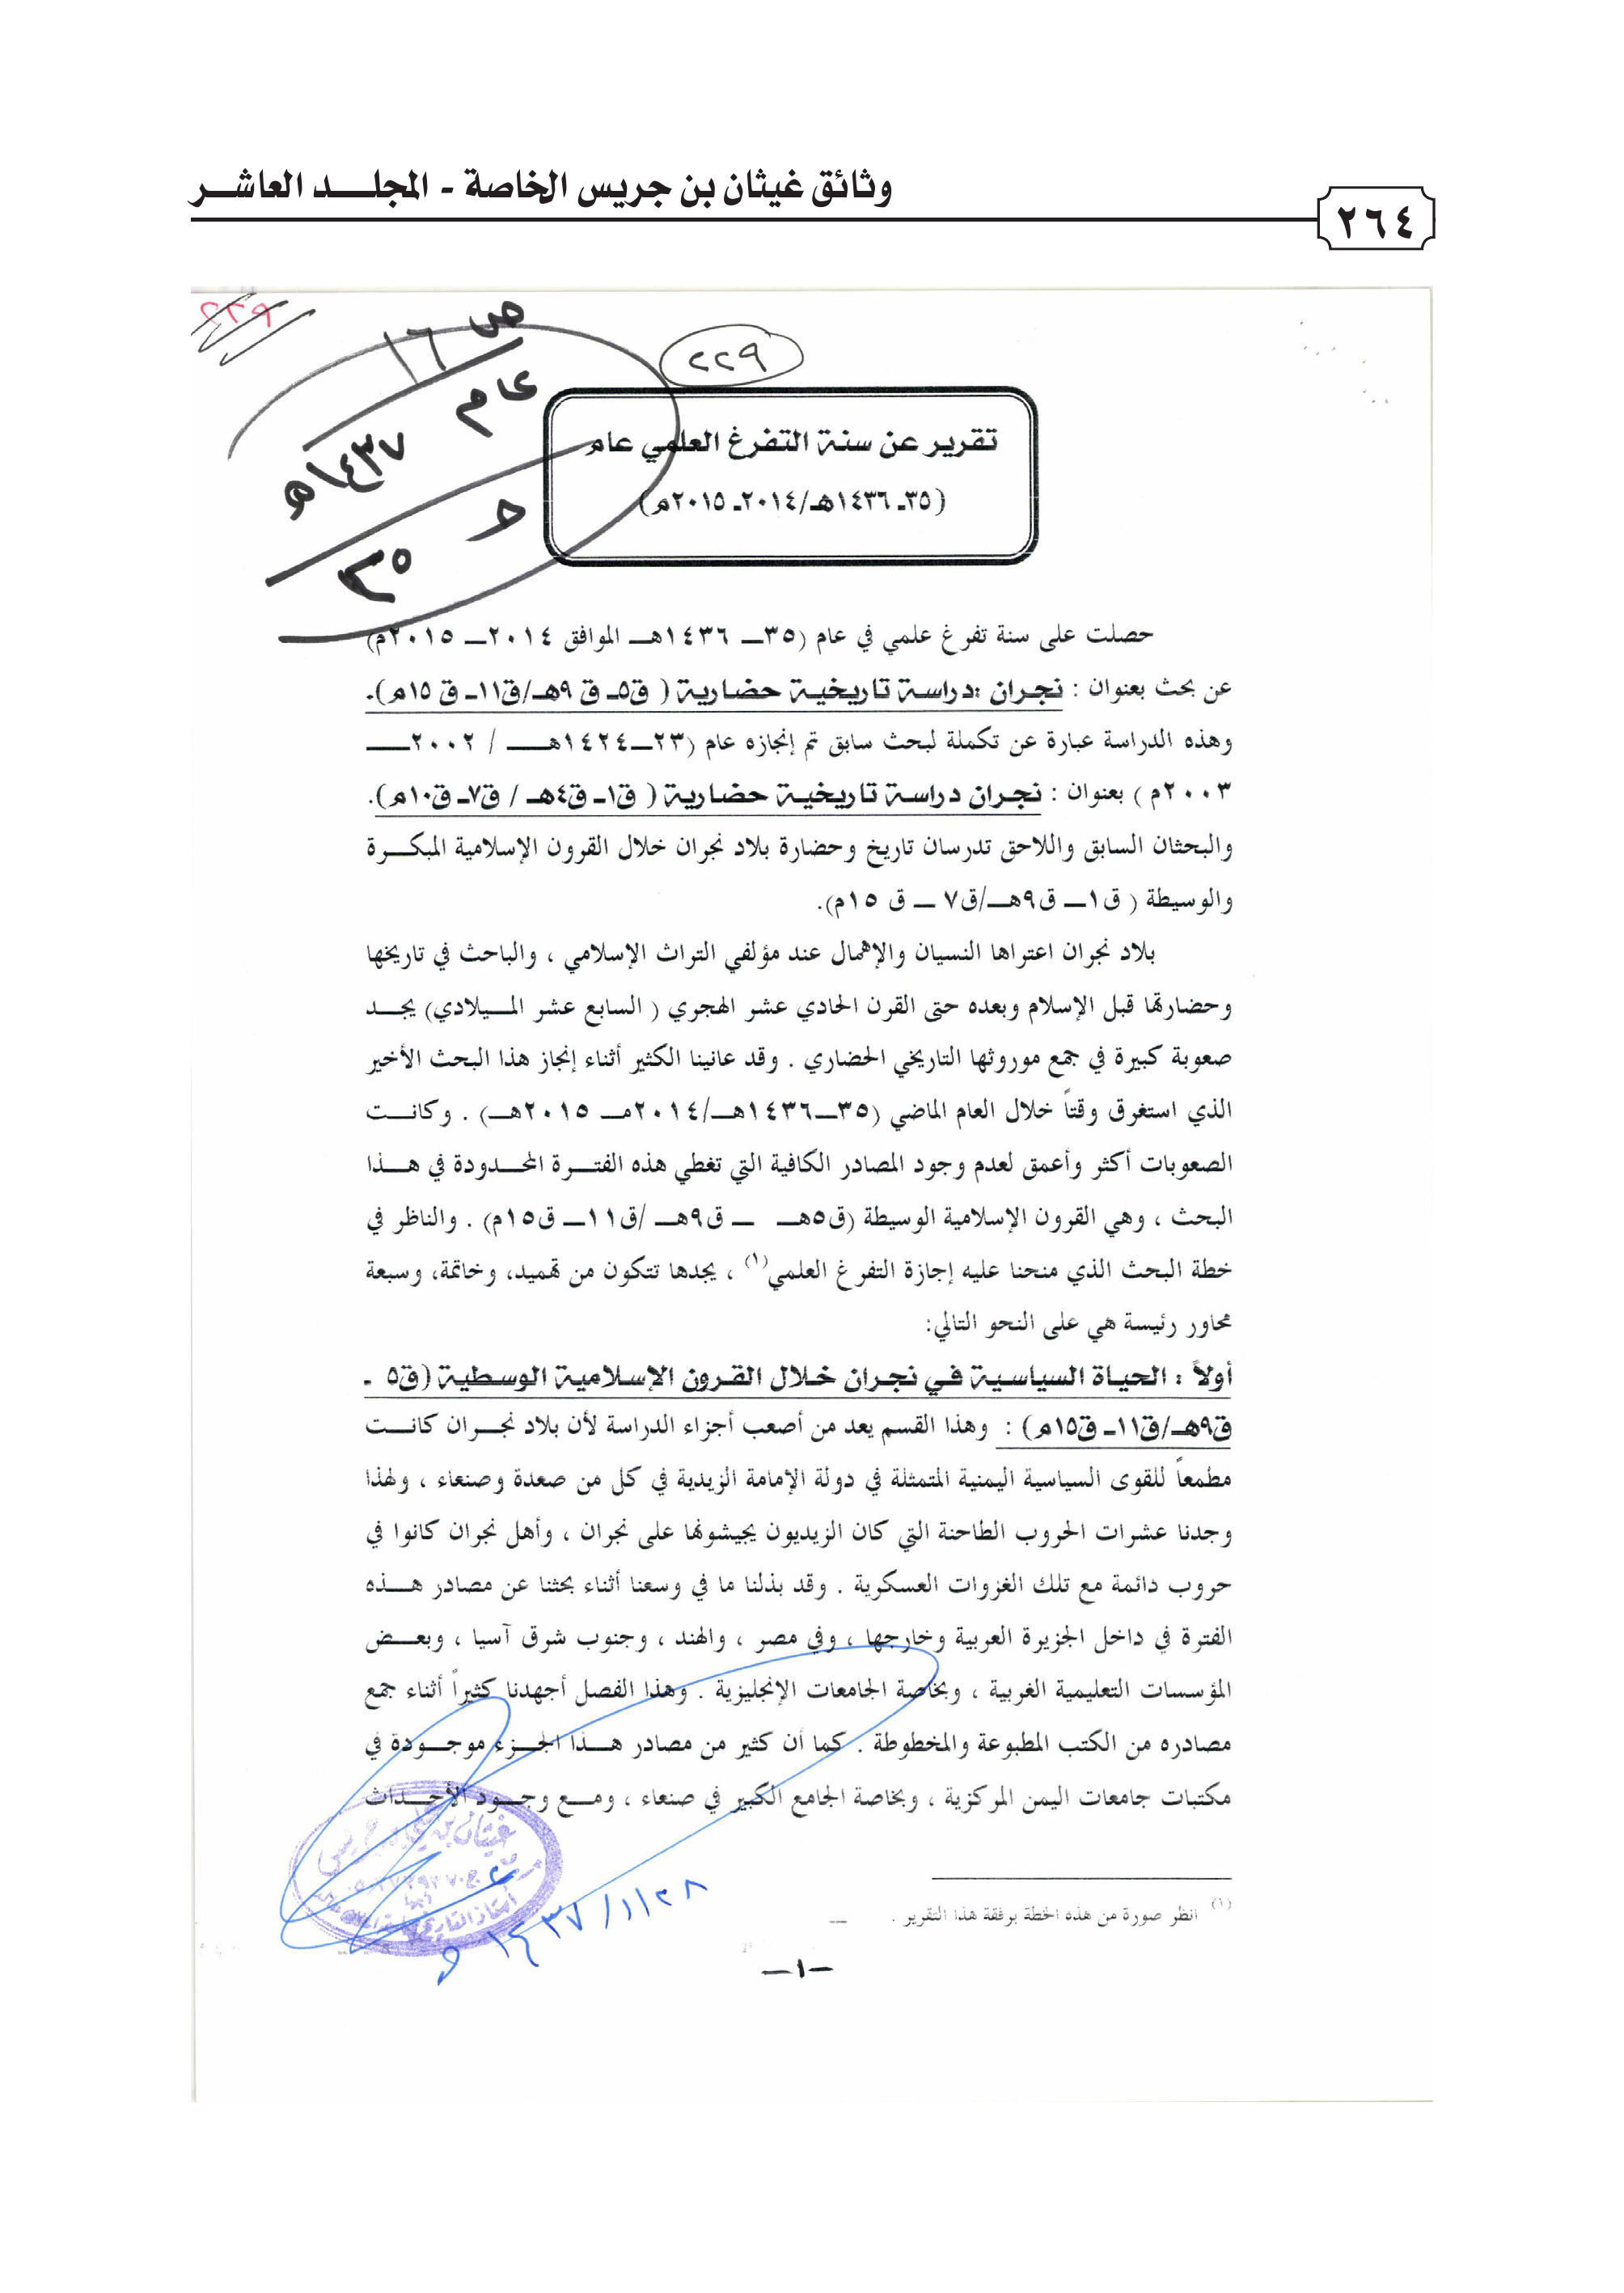 وثائق غيثان بن جريس الخاصة - المجلــــد العاشــــر
٢٦٤
٢٢٩
ص ١٦
٢٢٩
عام
١٤٣٧هـ
ح
٢٥
تقرير عن سنة التفرغ العلمي عام
(٣٥ـ ١٤٣٦هـ/٢٠١٤ـ ٢٠١٥م)
حصلت على سنة تفرغ علمي في عام (٣٥ــ ١٤٣٦هــ الموافق ٢٠١٤ــ ٢٠١٥م)
عن بحث بعنوان : نجران :دراسة تاريخية حضارية ( ق٥ـ ق ٩هـ/ق١١ـ ق ١٥م).
وهذه الدراسة عبارة عن تكملة لبحث سابق تم إنجازه عام (٢٣ــ١٤٢٤هــــ / ٢٠٠٢ــــ
٢٠٠٣م ) بعنوان : نجران دراسة تاريخية حضارية ( ق١ـ ق٤هـ / ق٧ـ ق١٠م).
والبحثان السابق واللاحق تدرسان تاريخ وحضارة بلاد نجران خلال القرون الإسلامية المبكــرة
والوسيطة ( ق١ــ ق٩هــ/ق٧ ــ ق ١٥م).
بلاد نجران اعتراها النسيان والإهمال عند مؤلفي التراث الإسلامي ، والباحث في تاريخها
وحضارتها قبل الإسلام وبعده حتى القرن الحادي عشر الهجري ( السابع عشر المــيلادي) يجــد
صعوبة كبيرة في جمع موروثها التاريخي الحضاري . وقد عانينا الكثير أثناء إنجاز هذا البحث الأخير
الذي استغرق وقتاً خلال العام الماضي (٣٥ــ١٤٣٦هــ/٢٠١٤مــ ٢٠١٥هــ) . وكانــت
الصعوبات أكثر وأعمق لعدم وجود المصادر الكافية التي تغطي هذه الفتــرة المحــدودة في هــذا
البحث ، وهي القرون الإسلامية الوسيطة (ق٥هــ ــ ق٩هــ /ق١١ــ ق١٥م) . والناظر في
خطة البحث الذي منحنا عليه إجازة التفرغ العلمي(١) ، يجدها تتكون من تمهيد، وخاتمة، وسبعة
محاور رئيسة هي على النحو التالي:
أولاً : الحياة السياسية في نجران خلال القرون الإسلامية الوسطية (ق٥ ـ
ق٩هـ/ق١١ـ ق١٥م) : وهذا القسم يعد من أصعب أجزاء الدراسة لأن بلاد نجــران كانــت
مطمعاً للقوى السياسية اليمنية المتمثلة في دولة الإمامة الزيدية في كل من صعدة وصنعاء ، ولهذا
وجدنا عشرات الحروب الطاحنة التي كان الزيديون يجيشونها على نجران ، وأهل نجران كانوا في
حروب دائمة مع تلك الغزوات العسكرية . وقد بذلنا ما في وسعنا أثناء بحثنا عن مصادر هــذه
الفترة في داخل الجزيرة العربية وخارجها ، وفي مصر ، والهند ، وجنوب شرق آسيا ، وبعــض
المؤسسات التعليمية الغربية ، وبخاصة الجامعات الإنجليزية . وهذا الفصل أجهدنا كثيراً أثناء جمع
مصادره من الكتب المطبوعة والمخطوطة . كما أن كثير من مصادر هــذا الجــزء موجــودة في
مكتبات جامعات اليمن المركزية ، وبخاصة الجامع الكبير في صنعاء ، ومــع وجــود الأحــداث
(١) انظر صورة من هذه الخطة برفقة هذا التقرير .
١٤٣٧/١/٢٨هـ
ــ١ــ